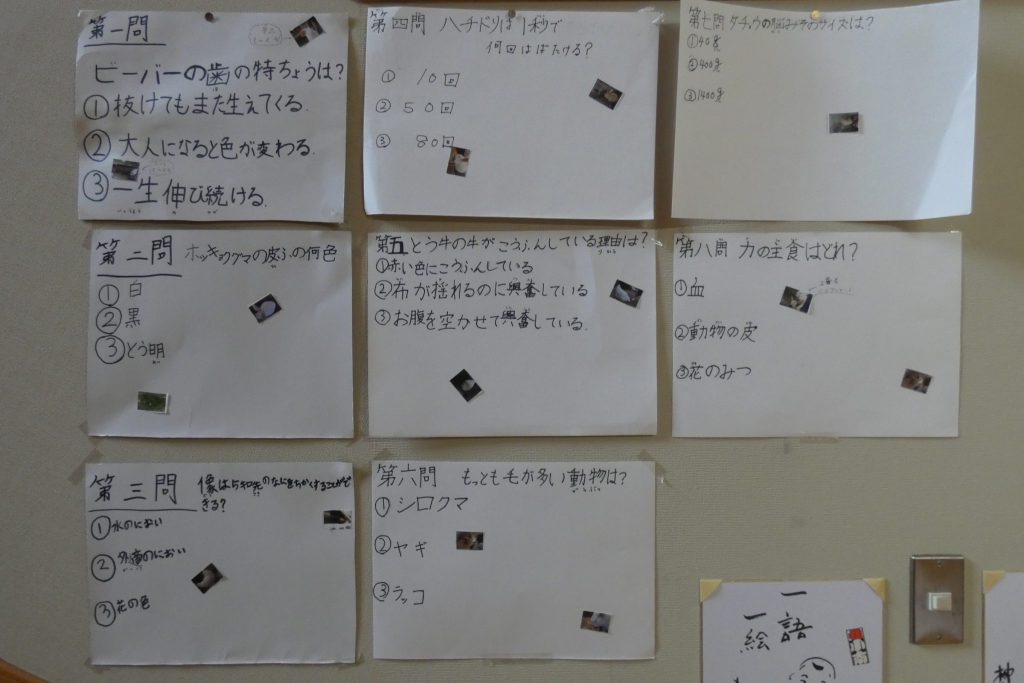 第一問
ビーバーの歯の特ちょうは?
①抜けてもまた生えてくる.
②大人になると色が変わる.
③一生伸び続ける.
第二問 ホッキョクグマの皮ふの何色
①白
②黒
③とう明
第三問
きる?
①水のにおい
③花の色
第四問 ハチドリは1秒で
何回はばたける?
① 10回
② 50回
③ 80回
第五 とう牛の牛がこうふんしている理由は?
①赤い色にこうふんしている
②布が揺れるのに興奮している
③お腹を空かせて興奮している.
第六問 もっとも毛が多い動物は?
①シロクマ
②ヤギ
③ラッコ
第七問 ダチョウの
サイズは?
①40g
②400g
③1400g
第八問 カの主食はどれ?
①血
②動物の皮
③花のみつ
一語
一絵